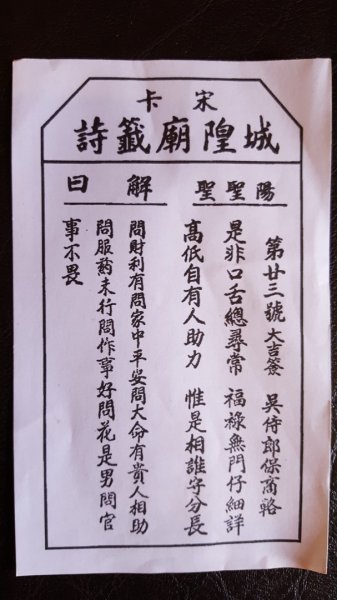 宋卡
城隍廟籤詩
陽聖聖
第廿三號 大吉簽 吳侍郎保商輅
是非口舌總尋常 福祿無門仔細詳
高低自有人助力 惟是相誰字分長
解曰
問財利有問家中平安問大命有貴人相助
問服葯未行問作事好問花是男問官
事不畏